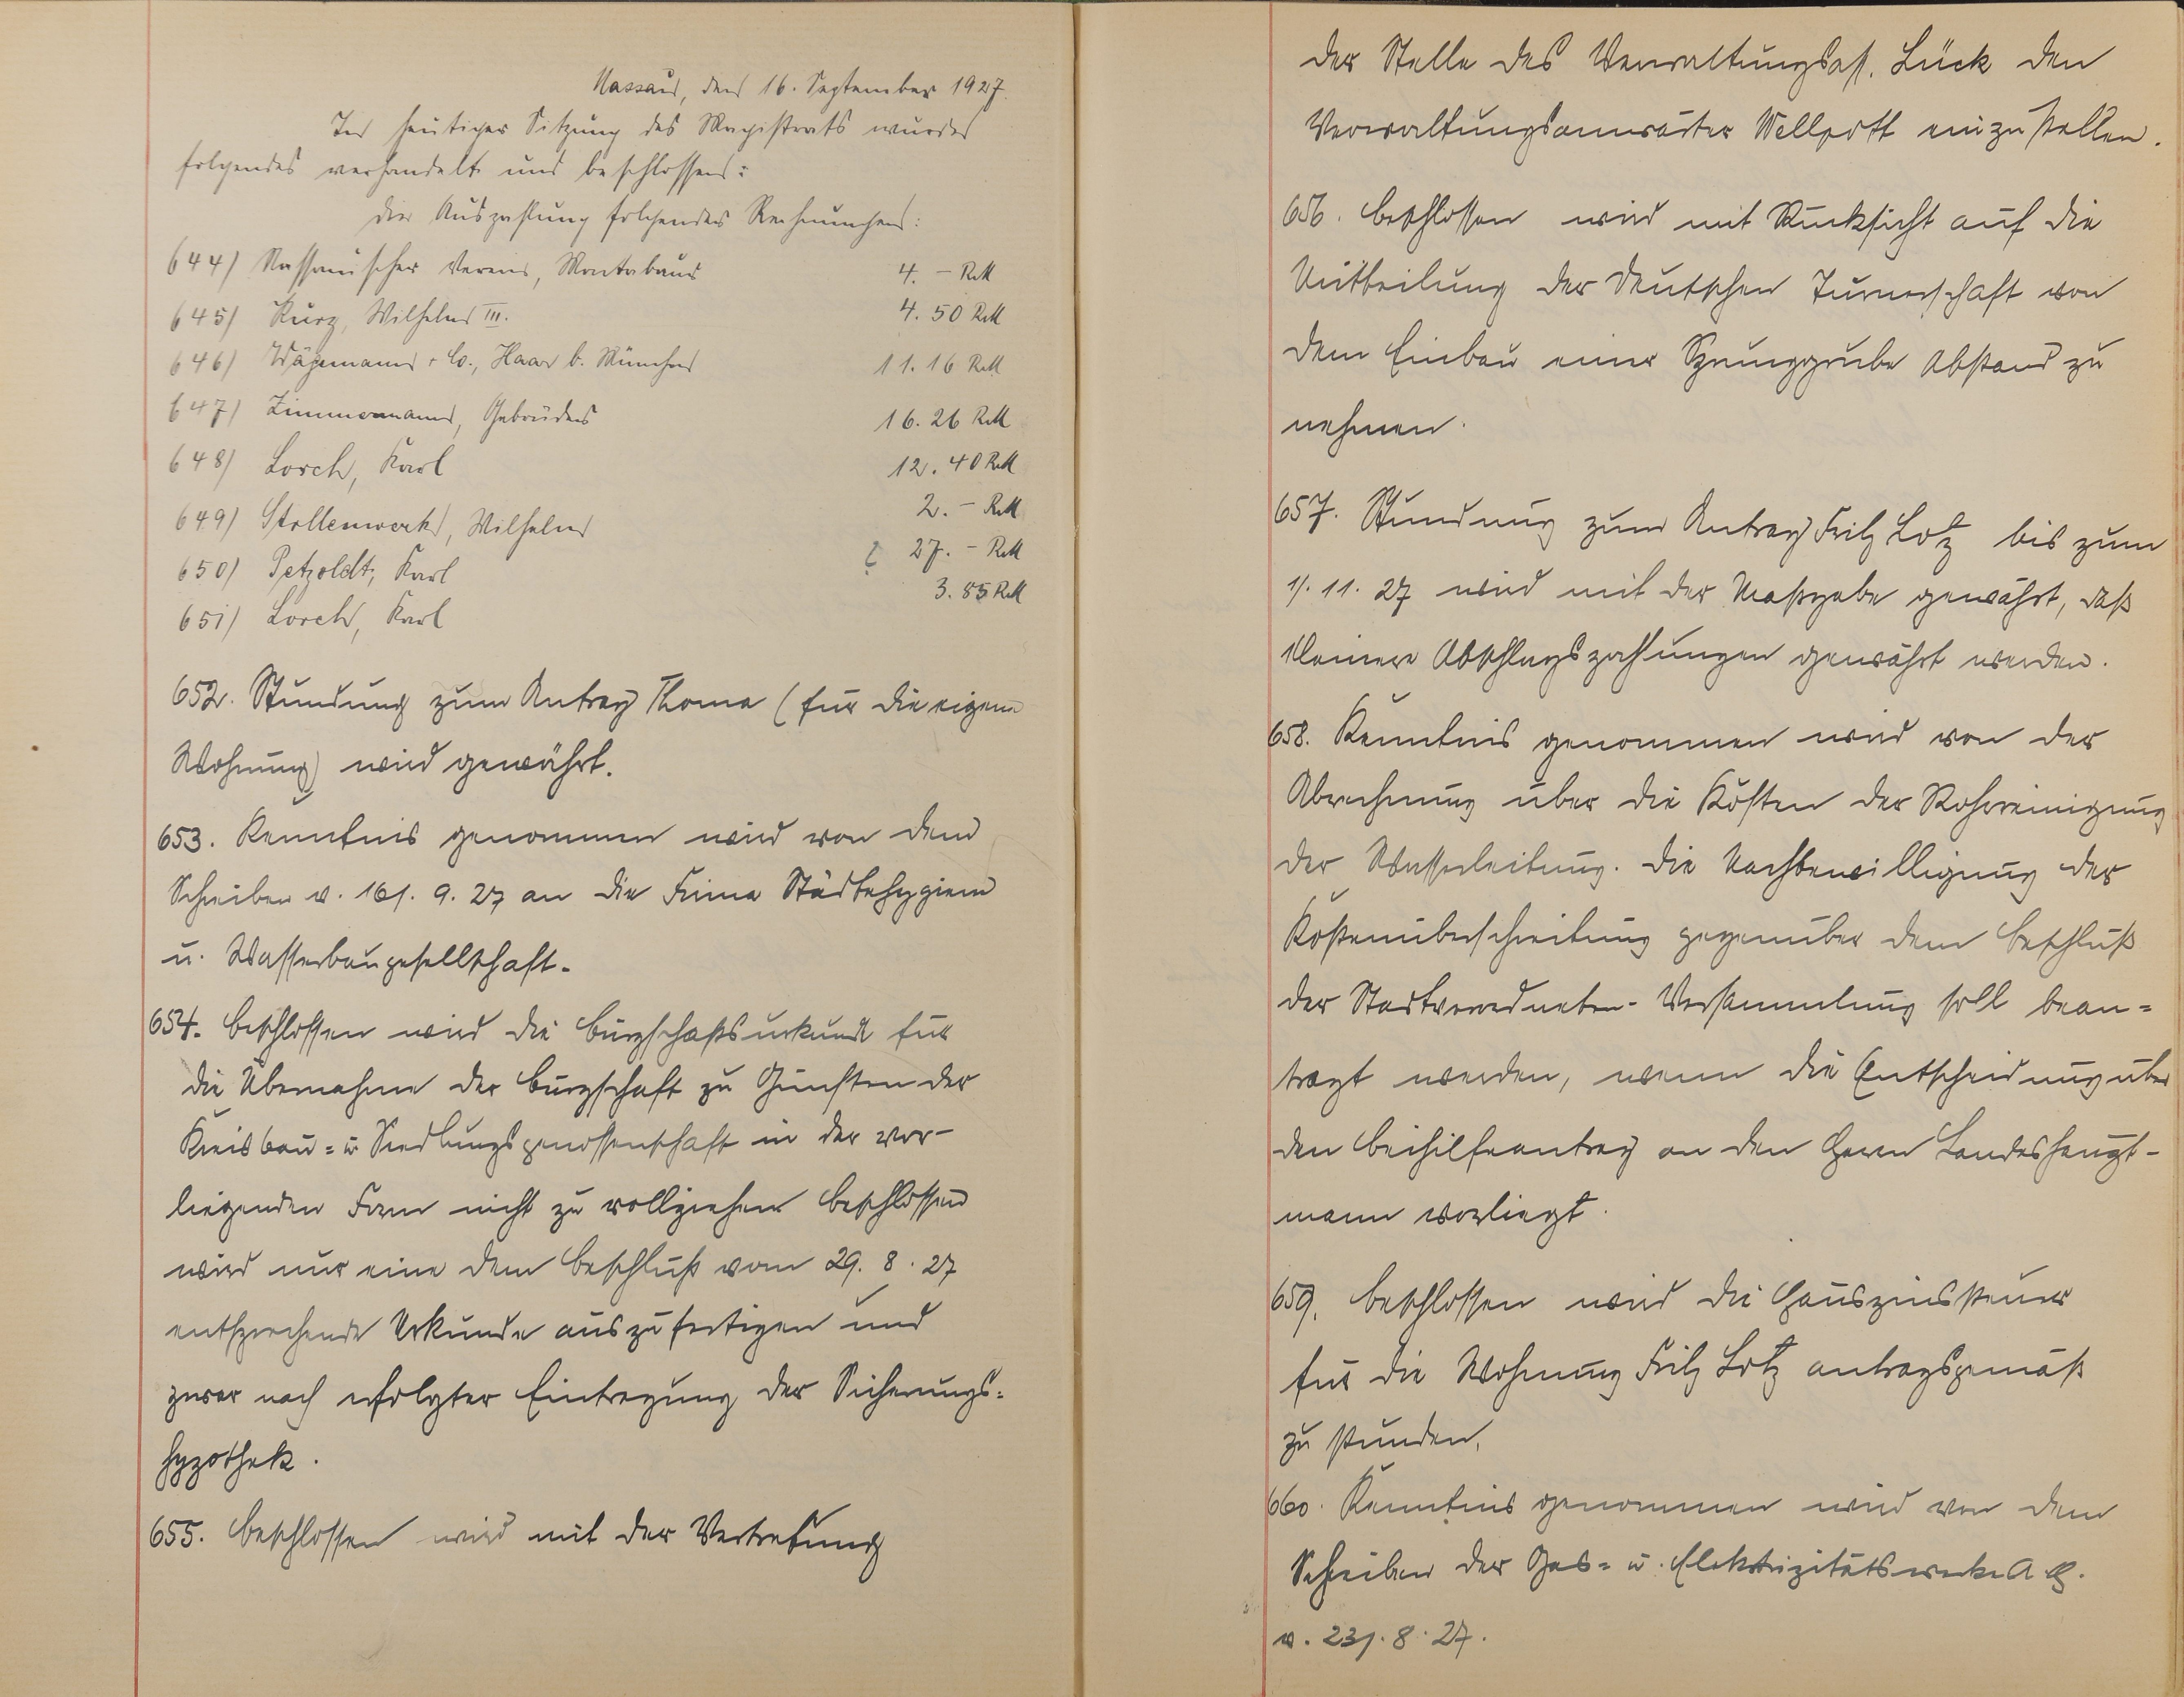 Nassau, den 16. September 1927.
In heutiger Sitzung des Magistrats wurde
folgendes verhandelt und beschlossen:
die Auszahlung folgender Rechnungen:
644) Nassauischer Verein, Montabaur 4.– RM
645) Kurz, Wilhelm III. 4.50 RM
646) Wägemann & Co., Haar b. München 11.16 RM
647) Zimmermann, Gebrüder 16.26 RM
648) Lorch, Karl 12.40 RM
649) Stollenwerk, Wilhelm 2.– RM
650) Petzoldt, Karl 27.– RM
651) Lorch, Karl 3.85 RM
652. Stundung zum Antrag Thoma (für die eigene
Wohnung) wird gewährt.
653. Kenntnis genommen wird von dem
Schreiben v. 16/. 9. 27 an die Firma Städtehygiene
u. Wasserbaugesellschaft.
654. beschlossen wird die Bürgschaftsurkunde für
die Übernahme der Bürgschaft zu Gunsten der
Kreisbau- u Siedlungsgenossenschaft in der vor-
liegenden Form nicht zu vollziehen beschlossen
wird nur eine dem Beschluß vom 29. 8. 27
entsprechende Urkunde auszufertigen und
zwar nach erfolgter Eintragung der Sicherungs-
hypothek.
655. beschlossen wird mit der Vertretung
der Stelle des Verwaltungsass. Lück den
Verwaltungsanwärter Wellpott einzustellen.
656. beschlossen wird mit Rücksicht auf die
Mitteilung der Deutschen Turnerschaft von
dem Einbau einer Sprunggrube Abstand zu
nehmen.
657. Stundung zum Antrag Fritz Lotz bis zum
1/. 11. 27 wird mit der Maßgabe gewährt, daß
kleinere Abschlagszahlungen gewährt werden.
658. Kenntnis genommen wird von der
Abrechnung über die Kosten der Rohrreinigung
der Wasserleitung. Die Nachbewilligung der
Kostenüberschreitung gegenüber dem Beschluß
der Stadtverordneten-Versammlung soll bean-
tragt werden, wenn die Entscheidung über
den Beihilfeantrag an den Herrn Landeshaupt-
mann vorliegt.
659. beschlossen wird die Hauszinssteuer
für die Wohnung Fritz Lotz antragsgemäß
zu stunden.
660. Kenntnis genommen wird von dem
Schreiben der Gas- u. Elektrizitätswerke A.G.
v. 23/. 8. 27.